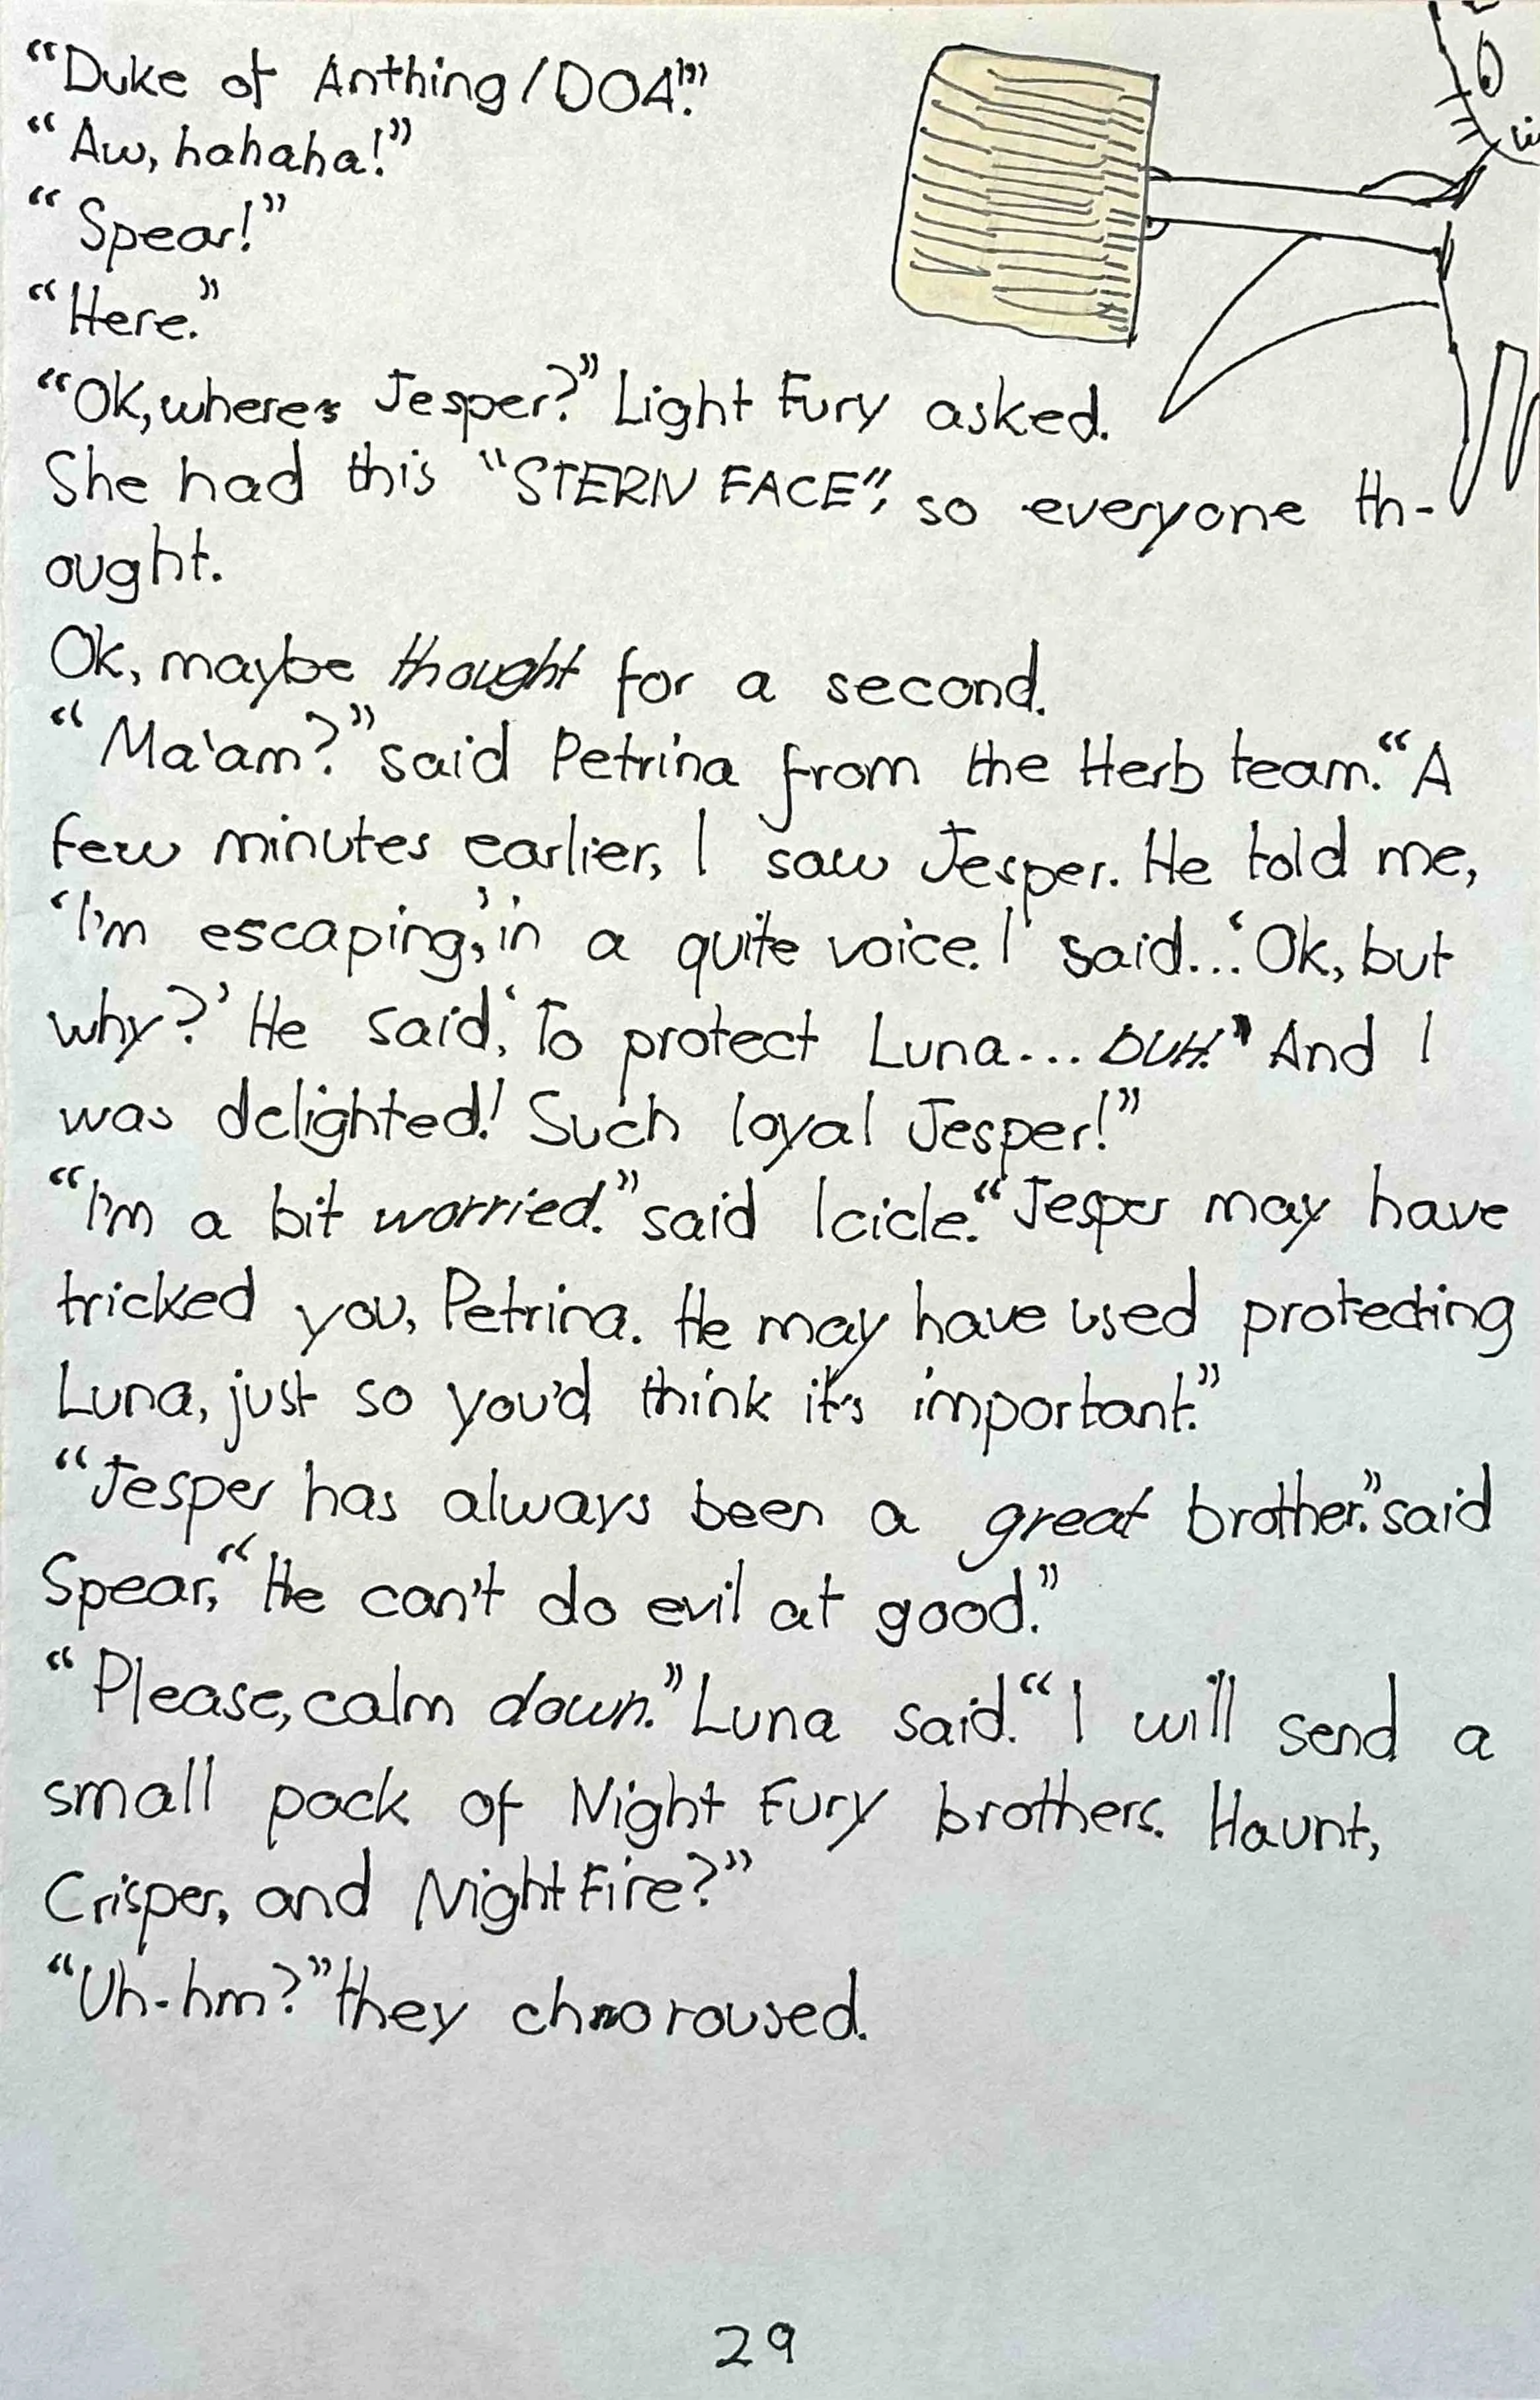 “Duke of Anthing/DOA!?”
“Aw, hahaha!”
“Spear!”
“Here.”
“Ok, where's Jesper?” Light Fury asked.
She had this “STERN FACE”, so everyone th-
ought.
Ok, maybe thought for a second.
“Ma'am?” said Petrina from the Herb team. “A
few minutes earlier, I saw Jesper. He told me,
‘I'm escaping,’ in a quite voice. I said...‘Ok, but
why?’ He said, ‘To protect Luna... DUH.’ And I
was delighted! Such loyal Jesper!”
“I'm a bit worried.” said Icicle. “Jesper may have
tricked you, Petrina. He may have used protecting
Luna, just so you'd think it's important.”
“Jesper has always been a great brother.” said
Spear, “He can't do evil at good.”
“Please, calm down.” Luna said. “I will send a
small pack of Night Fury brothers. Haunt,
Crisper, and NightFire?”
“Uh-hm?” they choroused.
29